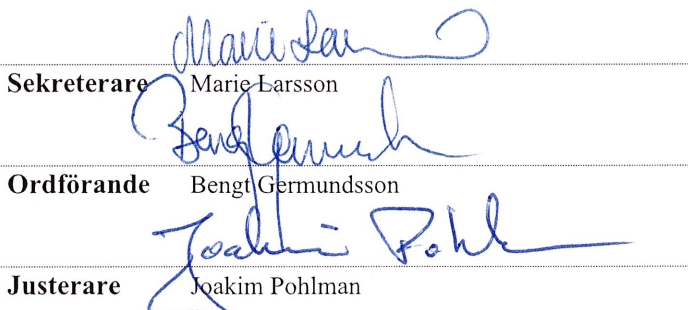 Marie Lar
Sekreterare Marie Larsson
Bengt Germundsson
Ordförande Bengt Germundsson
Joakim Pohlman
Justerare Joakim Pohlman